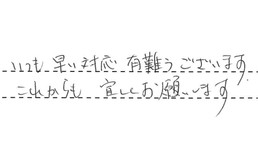 いつも 早い対応 有難うございます
これからも 宜しくお願います